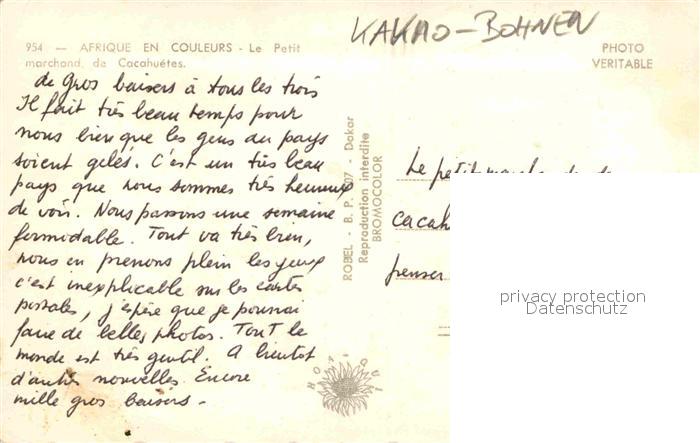 KAKAO-BOHNEN
954 — AFRIQUE EN COULEURS - Le Petit
marchand de Cacahuétes.
PHOTO
VERITABLE
de gros baisers à tous les trois
Il fait très beau temps pour
nous bien que les gens du pays
soient gelés. C'est un très beau
pays que nous sommes très heureux
de voir. Nous passons une semaine
formidable. Tout va très bien,
nous en prenons plein les yeux
c'est inexplicable sur les cartes
postales, j'espère que je pourrai
faire de belles photos. Tout le
monde est très gentil. A bientot
d'autres nouvelles. Encore
mille gros baisers -
ROBEL - B. P. - Dakar
Reproduction interdite
BROMOCOLOR
Le petit
cacah
penser
privacy protection
Datenschutz